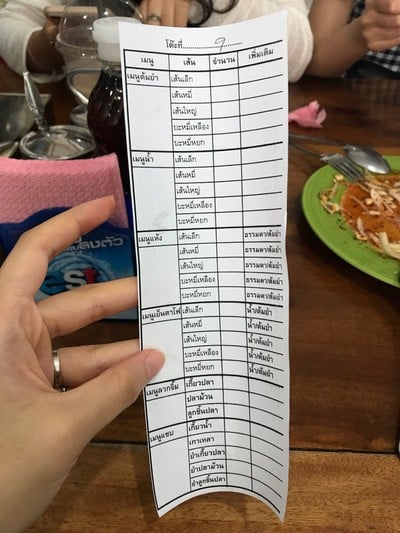 โต๊ะที่............9............
เมนู เส้น จำนวน เพิ่มเติม
เมนูต้มยำ เส้นเล็ก
เส้นหมี่
เส้นใหญ่
บะหมี่เหลือง
บะหมี่หยก
เมนูน้ำ เส้นเล็ก
เส้นหมี่
เส้นใหญ่
บะหมี่เหลือง
บะหมี่หยก
เมนูแห้ง เส้นเล็ก ธรรมดา/ต้มยำ
เส้นหมี่ ธรรมดา/ต้มยำ
เส้นใหญ่ ธรรมดา/ต้มยำ
บะหมี่เหลือง ธรรมดา/ต้มยำ
บะหมี่หยก ธรรมดา/ต้มยำ
เมนูเย็นตาโฟ เส้นเล็ก น้ำ/ต้มยำ
เส้นหมี่ น้ำ/ต้มยำ
เส้นใหญ่ น้ำ/ต้มยำ
บะหมี่เหลือง น้ำ/ต้มยำ
บะหมี่หยก น้ำ/ต้มยำ
เมนูลวกจิ้ม เกี๊ยวปลา
ปลาม้วน
ลูกชิ้นปลา
เมนูแซบ เกี๊ยวน้ำ
เกาเหลา
ยำเกี๊ยวปลา
ยำปลาม้วน
ยำลูกชิ้นปลา